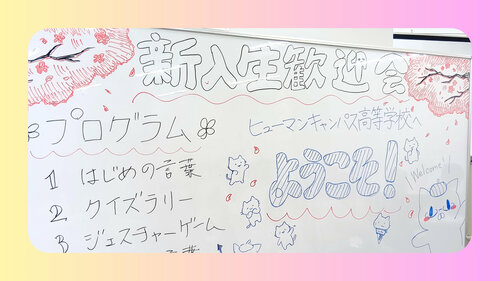 新入生歓迎会
プログラム
1 はじめの言葉
2 クイズラリー
3 ジェスチャーゲーム
ヒューマンキャンパス高等学校へ
ようこそ!
Welcome!